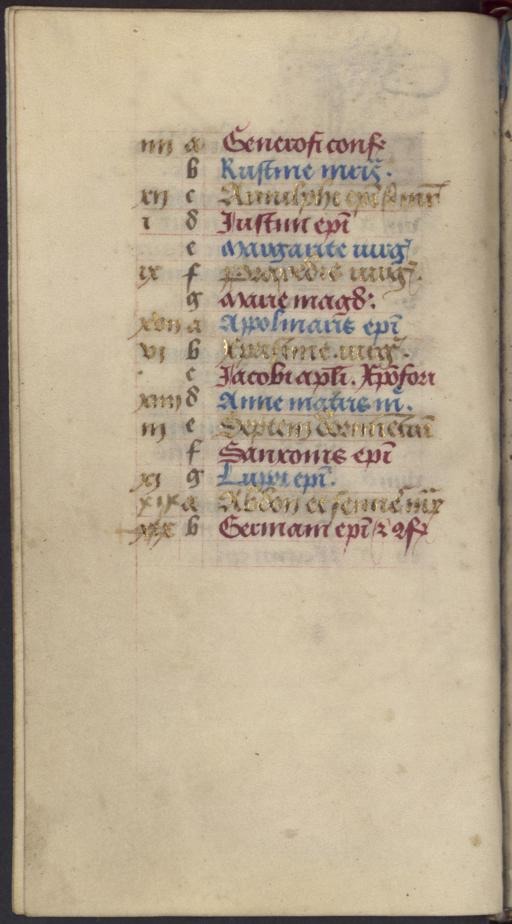 iiii a Generosi conf
b Rustine mris.
xii c Arnulphe epi & mr
i d Justini epi
e Margarite virg
ix f praxedis virg.
g Marie magd.
xvii a Appolinaris epi
vi b Xpistine virg.
c Jacobi apli. Xpofori
xiiii d Anne matris m.
iii e Septem dormientiu
f Sanxonis epi
xi g Lupi epi.
xix a Abdon et sennes mr
b Germani epi & 9f